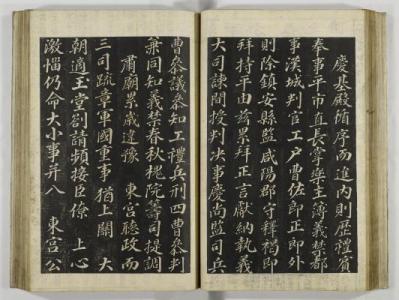 慶基殿循序而進內則歷禮賓
奉事平市直長掌樂主簿義禁都
事漢城判官工戶曹佐郎正郎外
則除鎮安縣監咸陽郡守釋褐即
拜持平由茲累拜正言獻納執義
大司諫間授判決事慶尚監司兵
曹參議參知工禮兵刑四曹參判
兼同知義禁春秋槐院籌司提調
肅廟累歲違豫 東宮聽政而
三司疏章軍國重事猶上關 大
朝適玉堂劄請頻接臣僚 上心
激惱仍命大小事并入 東宮公